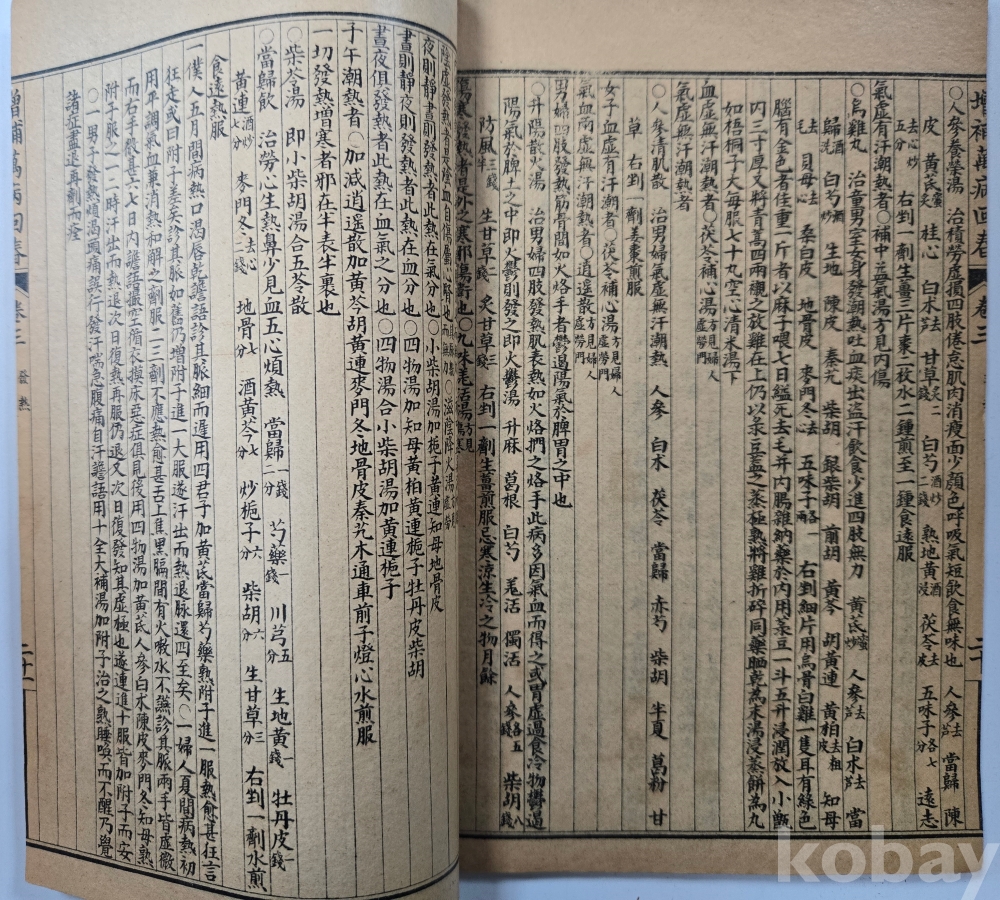 增補萬病回春 卷三 二十
○人參養榮湯 治積勞虛損四肢倦怠肌肉消瘦面少顏色呼吸氣短飲食無味也 人參去芦 當歸 陳
皮 黃芪蜜炙 桂心 白朮去芦 甘草炙二錢 白芍酒炒二錢 熟地黃酒浸 茯苓去皮 五味子各七分 遠志
去心炒五分 右剉一劑生薑三片棗二枚水二鍾煎至一鍾食遠服
氣虛有汗潮熱者○補中益氣湯方見內傷
○烏雞丸 治童男室女身發潮熱吐血痰出盜汗飲食少進四肢無力 黃芪蜜炒 人參去芦 白朮去芦 當
歸酒洗 白芍酒炒 生地 陳皮 秦艽 柴胡 銀柴胡 前胡 黃芩 胡黃連 黃柏去粗皮 知母
去毛 貝母去心 桑白皮 地骨皮 麥門冬去心 五味子各一兩 右剉細片用烏骨白雞一隻耳有綠色
腦有金色者佳重一斤者以麻子喂七日縊死去毛并內腸雜納藥於內用菉豆一斗五升浸潤放入小甑
內三寸厚又將青蒿四兩襯之放雞在上仍以菉豆蓋之蒸極熱將雞折碎同藥晒乾為末湯浸蒸餅為丸
如梧桐子大每服七十九空心清米湯下
血虛有汗潮熱者○茯苓補心湯方見婦人虛勞門
氣血兩虛有汗潮熱者
○人參清肌散 治男婦氣虛無汗潮熱 人參 白朮 茯苓 當歸 赤芍 柴胡 半夏 葛粉 甘
草 右剉一劑姜棗煎服
女子血虛有汗潮熱者○茯苓補心湯方見婦人虛勞門
氣血兩虛無汗潮熱者○逍遙散方見婦人虛勞門
男婦四肢發熱筋骨間如火烙手者鬱遏陽氣於脾胃之中也
○升陽散火湯 治男婦四肢發熱肌表熱如火烙捫之烙手此病多因氣血而得之或胃虛過食冷物鬱遏
陽氣於脾土之中即火鬱則發之即火鬱湯 升麻 葛根 白芍 羌活 獨活 人參各五錢 柴胡八錢
防風二錢半 生甘草二錢 炙甘草三錢 右剉一劑生薑煎服忌寒涼生冷之物月餘
傷寒發熱者是外之寒邪傷衛也○九味羌活湯方見傷寒
夜則靜晝則發熱者此熱在氣分也○小柴胡湯加梔子黃連知母地骨皮
晝則靜夜則發熱者此熱在血分也○四物湯加知母黃柏黃連梔子牡丹皮柴胡
晝夜俱發熱者此熱在血氣之分也○四物湯合小柴胡湯加黃連梔子
子午潮熱者○加減逍遥散加黃芩胡黃連麥門冬地骨皮秦艽木通車前子燈心水煎服
一切發熱增寒者邪在半表半裏也
○柴苓湯 即小柴胡湯合五苓散
○當歸飲 治勞心生熱鼻少見血五心煩熱 當歸一錢二分 芍藥一錢 川芎五分 生地黃一錢 牡丹皮一錢
黃連酒炒七分 麥門冬去心二錢 地骨七分 酒黃芩七分 炒梔子六分 柴胡六分 生甘草三分 右剉一劑水煎
食遠熱服
一僕人五月間病熱口渴唇乾譫語診其脈細而遲用四君子加黃芪當歸芍藥熟附子進一服熱愈甚狂言
狂走或曰附子差矣診其脈如舊仍增附子進一大服遂汗出而熱退脈還四至矣○一婦人夏間病熱初
用年調氣血兼消熱和解之劑服二三劑不應熱愈甚舌上焦黑膈間有火嗽水不嚥診其脈兩手皆虛微
而右手微甚六七日內譫語撮空循衣摸床惡症俱見後用四物湯加黃芪人參白朮陳皮麥門冬知母熟
附子服之一二時汗出而熱退次日復熱再服仍退又次日復發知其虛極也遂連進十服皆加附子而安
○一男子發熱煩渴頭痛誤行發汗喘急腹痛自汗譫語用十全大補湯加附子治之熟睡喚而不醒乃覺
諸症盡退再劑而痊
增補萬病回春 卷三 發熱 二十一
kobay